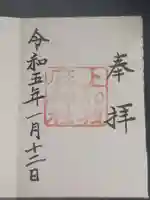 奉拝
令和五年一月十二日